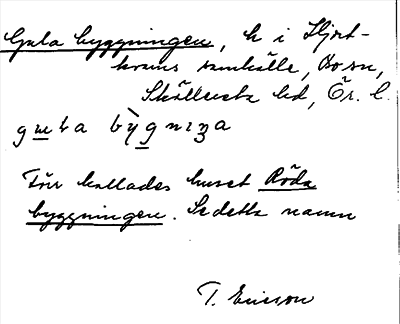 Gula byggningen, h i Hjort-
kvarns samhälle, Bo sn,
Skyllersta hd, Ör. l.
gula bỳgniŋa
Förr kallades huset Röda
byggningen. Se detta namn
T. Ericson